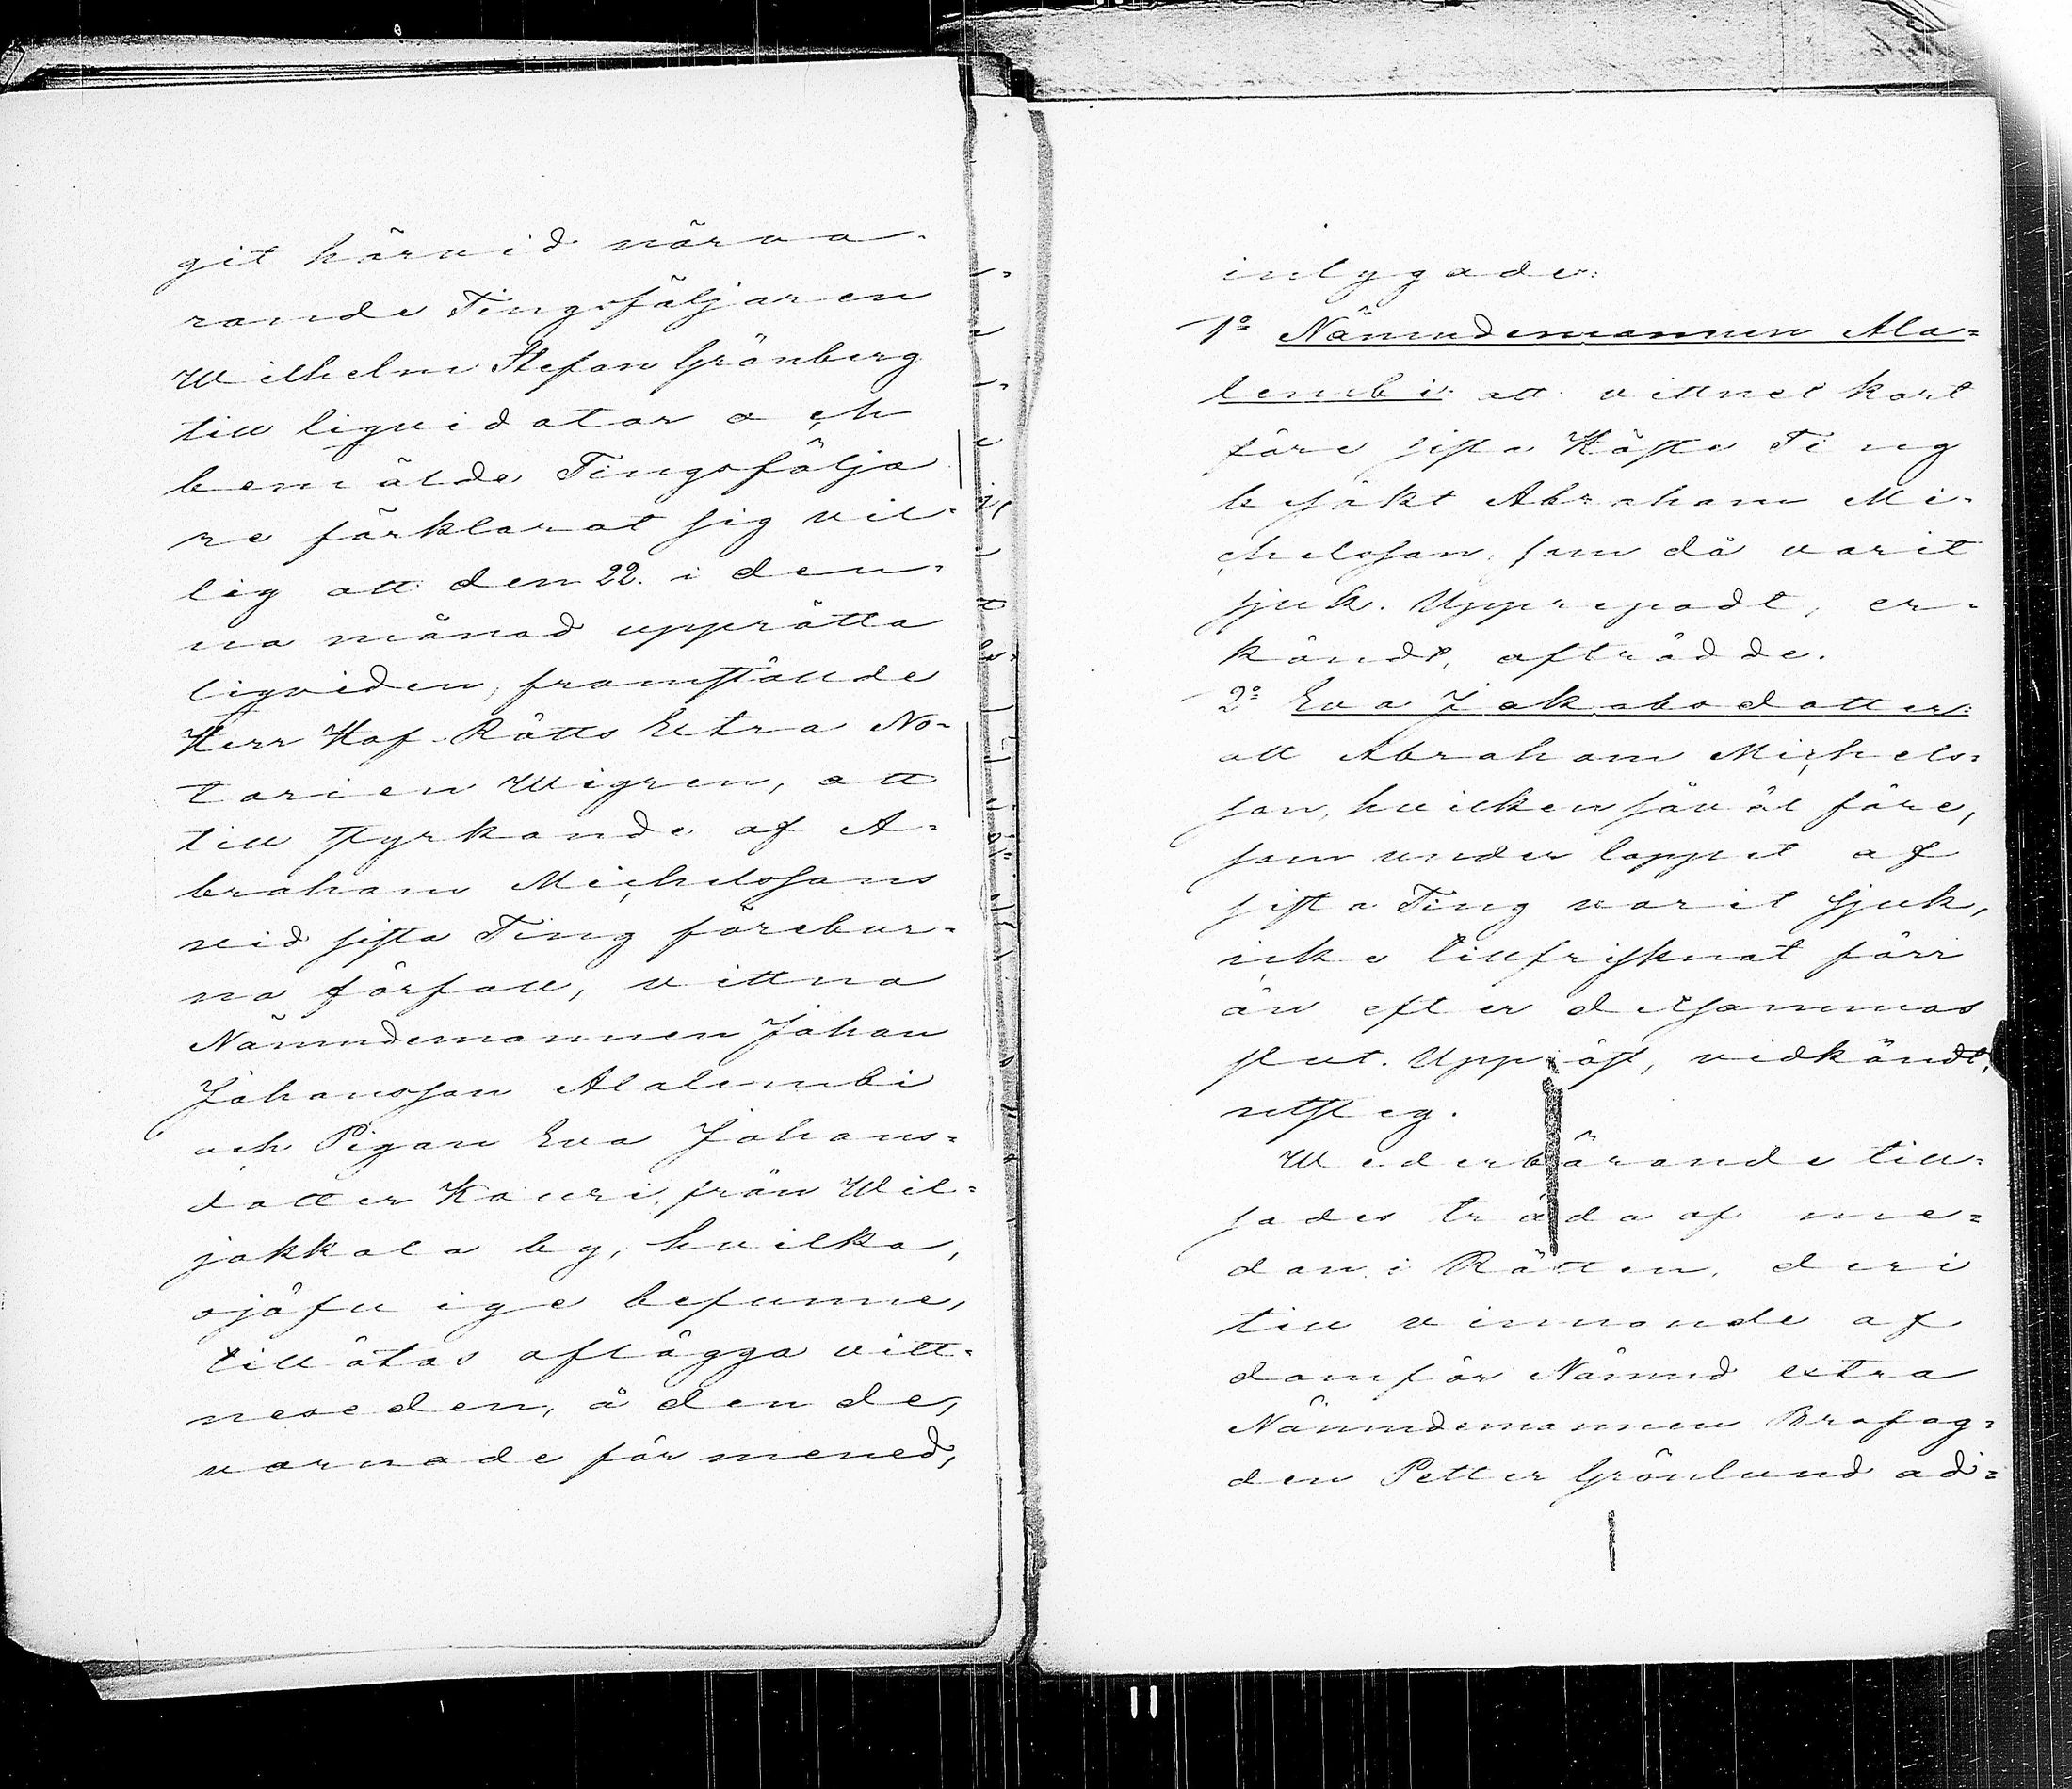 git härvid närva-
rande Tingsföljaren
Wilhelm Stefan Grönberg
till liqvidator och
bemälde Tingsfölja
re förklarat sig vil-
lig att den 22. i den-
na månad upprätta
liqviden, framställde
Herr Hof Rätts Extra No-
tarien Wigren, att
till styrkande af A-
braham Michelssons
vid sista Ting förebur-
na förfall, vittna
Nämndemannen Johan
Johansson Alalembi
och Pigan Eva Johans-
dotter Kauri från Wil-
jakkala by, hvilka,
ojäfvige befunne,
tillåtas aflägga vitt-
neseden, å den de,
varnade för mened,
intygade:
1º Nämndemannen Ala-
lembi: att vittnet kort
före sista Höste Ting
besökt Abraham Mi-
chelsson, som då varit
sjuk. Upprepadt, er-
kändt, afträdde.
2º Eva Jakobsdotter:
att Abraham Michels-
son, hvilken såväl före,
som under loppet af
sista Ting varit sjuk,
icke tillfrisknat förr
än efter detsammas
slut. Uppläst, vidkändt,
utsteg.
Wederbörande till-
sades träda af me-
dan i Rätten, deri
till vinnande af
domför Nämnd extra
Nämndemannen Brofog-
den Petter Grönlund ad-